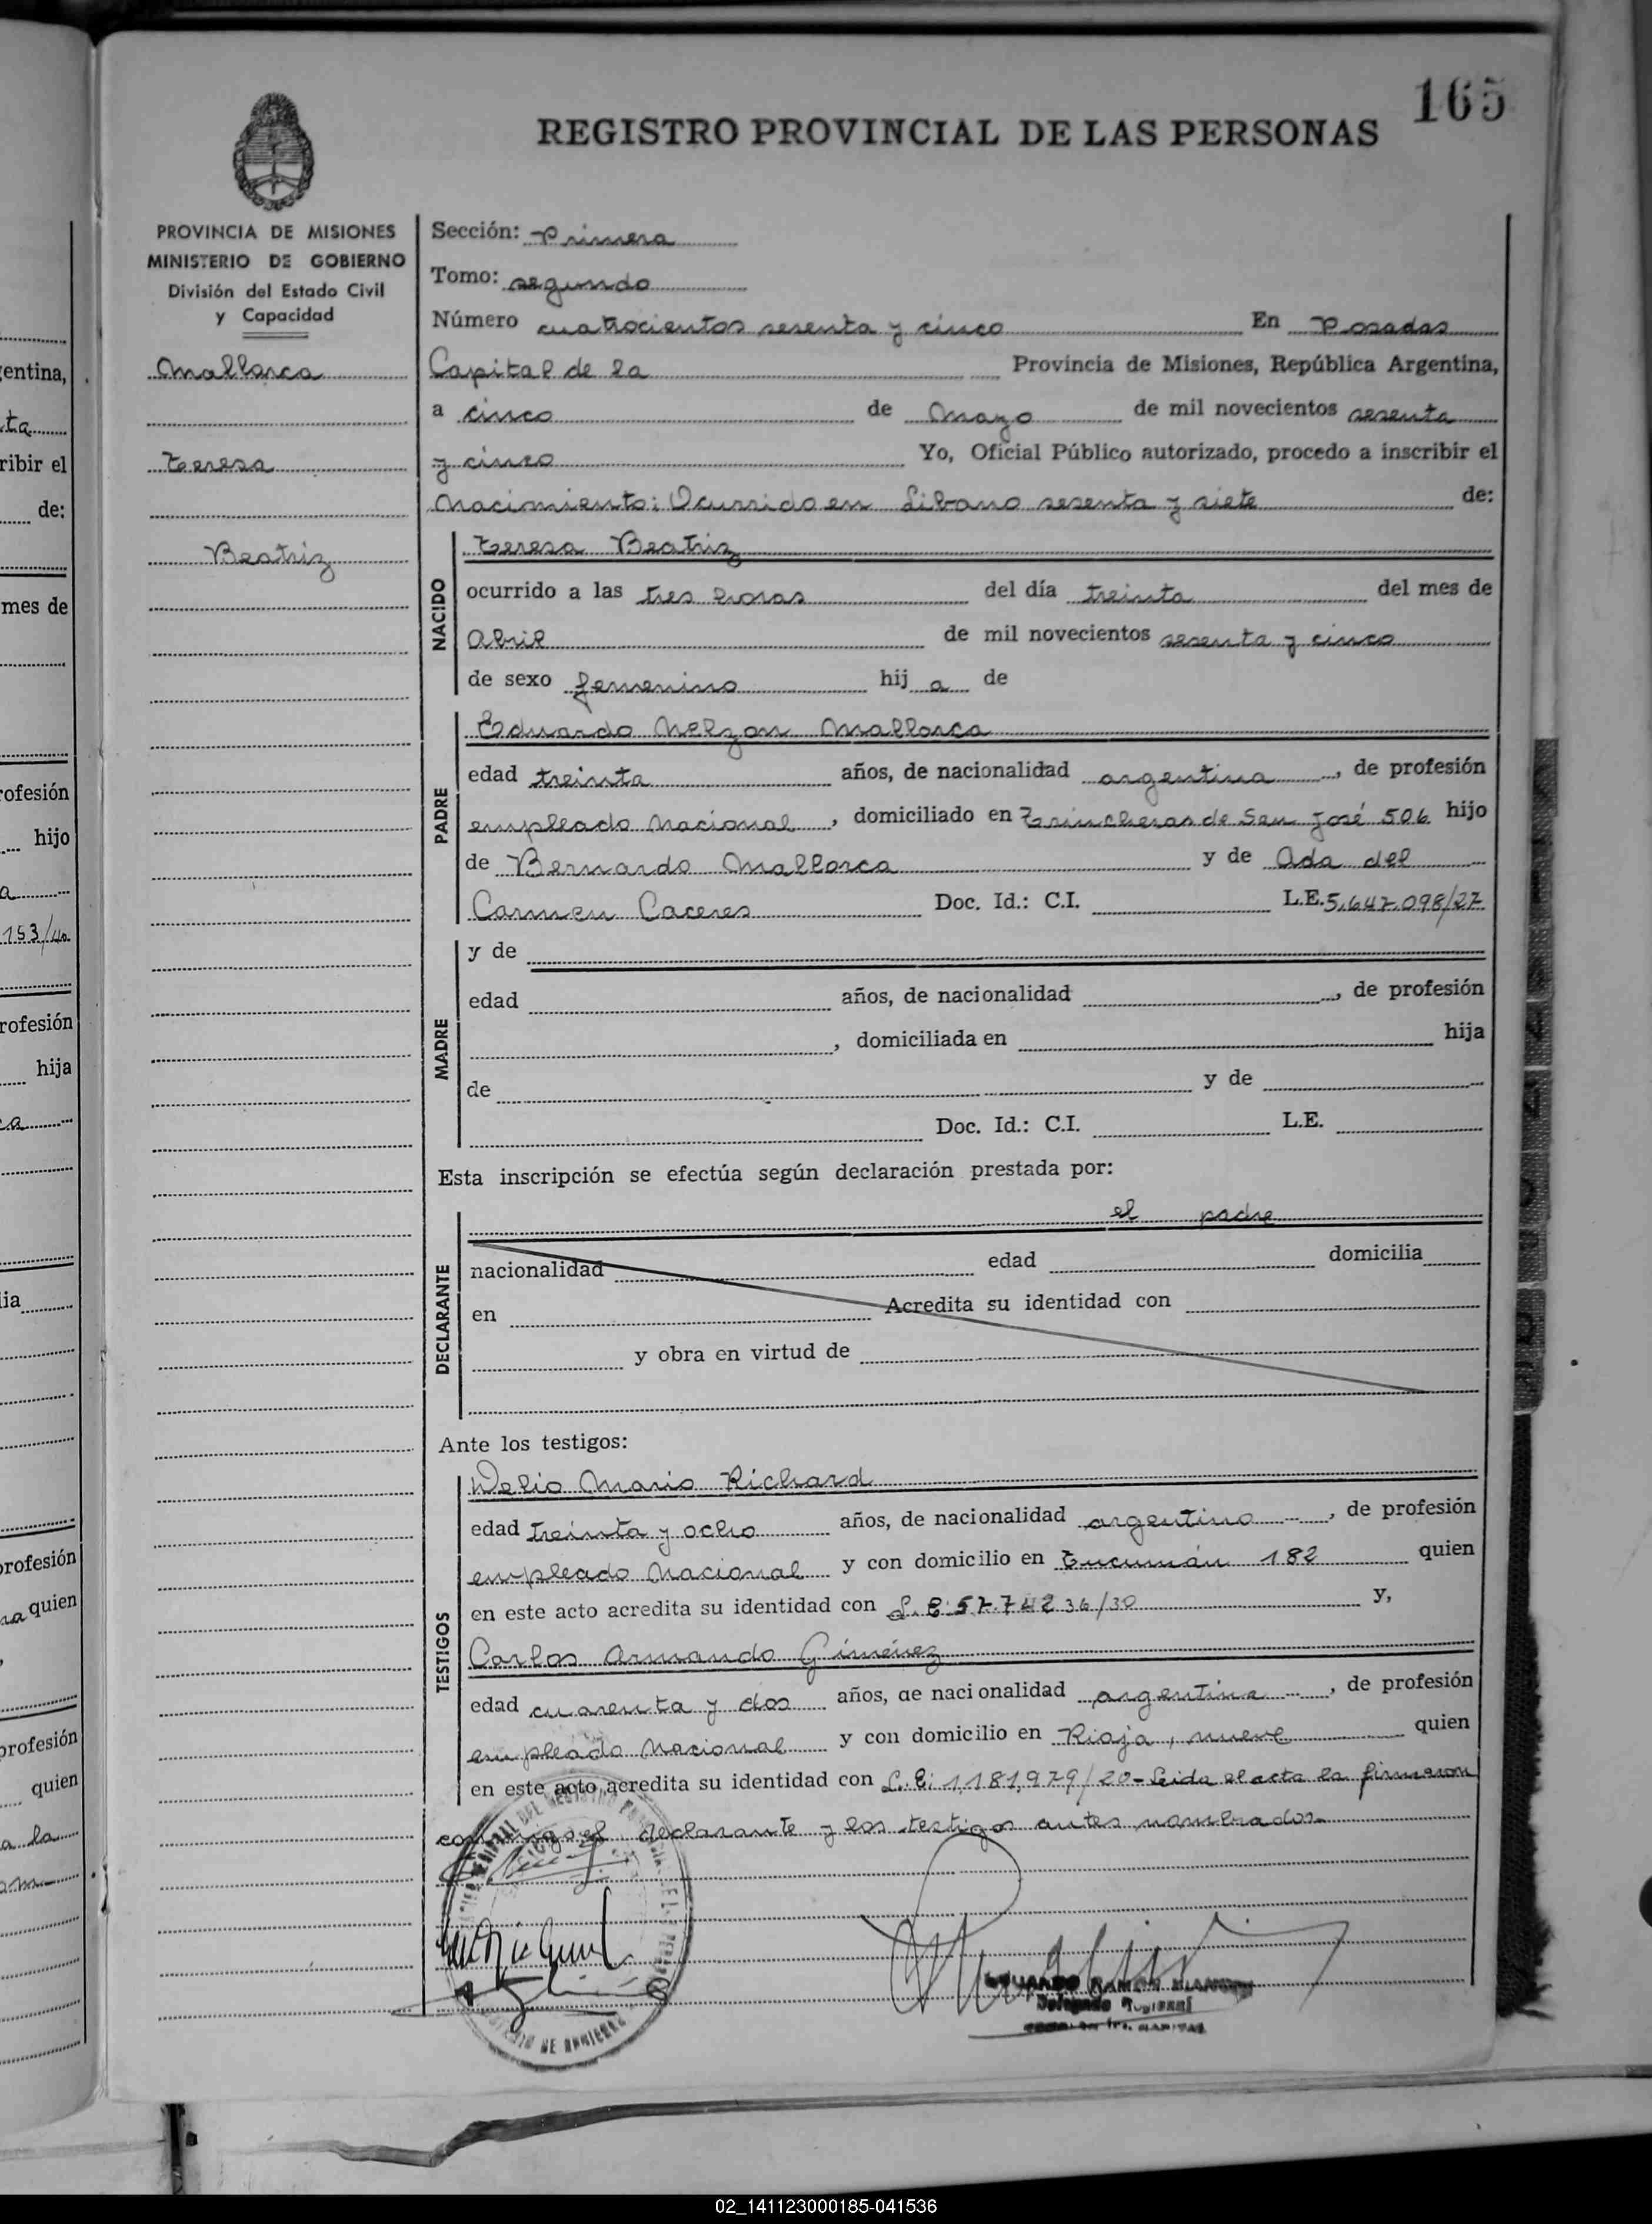 165
REGISTRO PROVINCIAL DE LAS PERSONAS
PROVINCIA DE MISIONES
MINISTERIO DE GOBIERNO
División del Estado Civil
y Capacidad
Mallorca
Teresa
Beatriz
Sección: Primera
Tomo: segundo
Número cuatrocientos sesenta y cinco En Posadas
Capital de la Provincia de Misiones, República Argentina,
a cinco de Mayo de mil novecientos sesenta
y cinco Yo, Oficial Público autorizado, procedo a inscribir el
Nacimiento: Ocurrido en Libano sesenta y siete de:
NACIDO
Teresa Beatriz
ocurrido a las tres horas del día treinta del mes de
Abril de mil novecientos sesenta y cinco
de sexo femenino hij a de
PADRE
Eduardo Nelzon Mallorca
edad treinta años, de nacionalidad argentina, de profesión
empleado Nacional, domiciliado en Trincheras de San José 506 hijo
de Bernardo Mallorca y de Ada del
Carmen Caceres Doc. Id.: C.I. L.E. 5.647.098/27
MADRE
y de
edad años, de nacionalidad , de profesión
, domiciliada en hija
de y de
Doc. Id.: C.I. L.E.
Esta inscripción se efectúa según declaración prestada por:
el padre
DECLARANTE
nacionalidad edad domicilia
en Acredita su identidad con
y obra en virtud de
Ante los testigos:
TESTIGOS
Delio Mario Richard
edad treinta y ocho años, de nacionalidad argentino, de profesión
empleado Nacional y con domicilio en Tucumán 182 quien
en este acto acredita su identidad con L.E: 57.742 36/30 y,
Carlos Armando Giménez
edad cuarenta y dos años, de nacionalidad argentina, de profesión
empleado Nacional y con domicilio en Rioja, nueve quien
en este acto acredita su identidad con L.E: 1,181,979/20- Leida el acta la firmaron
conmigo el declarante y los testigos antes nombrados.
EDUARDO RAMON
02_141123000185-041536
entina,
ta
ribir el
de:
mes de
rofesión
hijo
a
153/40
rofesión
hija
ca
ia
profesión
quien
profesión
quien
a la